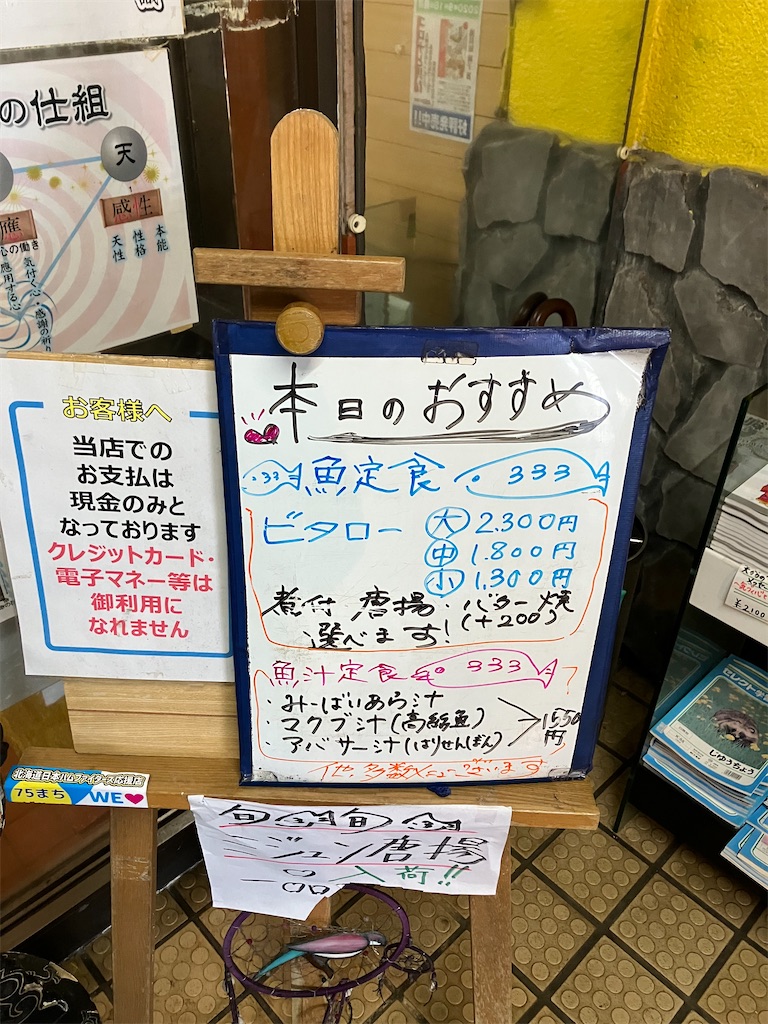 の仕組
天
感性
本能
性格
天性
心の働き
気付く心
應用する心
お客様へ
当店での
お支払は
現金のみと
なっております
クレジットカード・
電子マネー等は
御利用に
なれません
本日のおすすめ
魚定食
ビタロー 大 2.300円
中 1.800円
小 1.300円
煮付 唐揚 バター焼
選べます! (+200)
魚汁定食
・みーばいあら汁
・マクブ汁(高級魚)
・アバサー汁(はりせんぼん)
1550円
他、多数ございます
北海道日本ハムファイターズ応援店
15まち WE
旬 旬
ミジュン唐揚
一品 入荷!!
¥2100
じゆうちょう